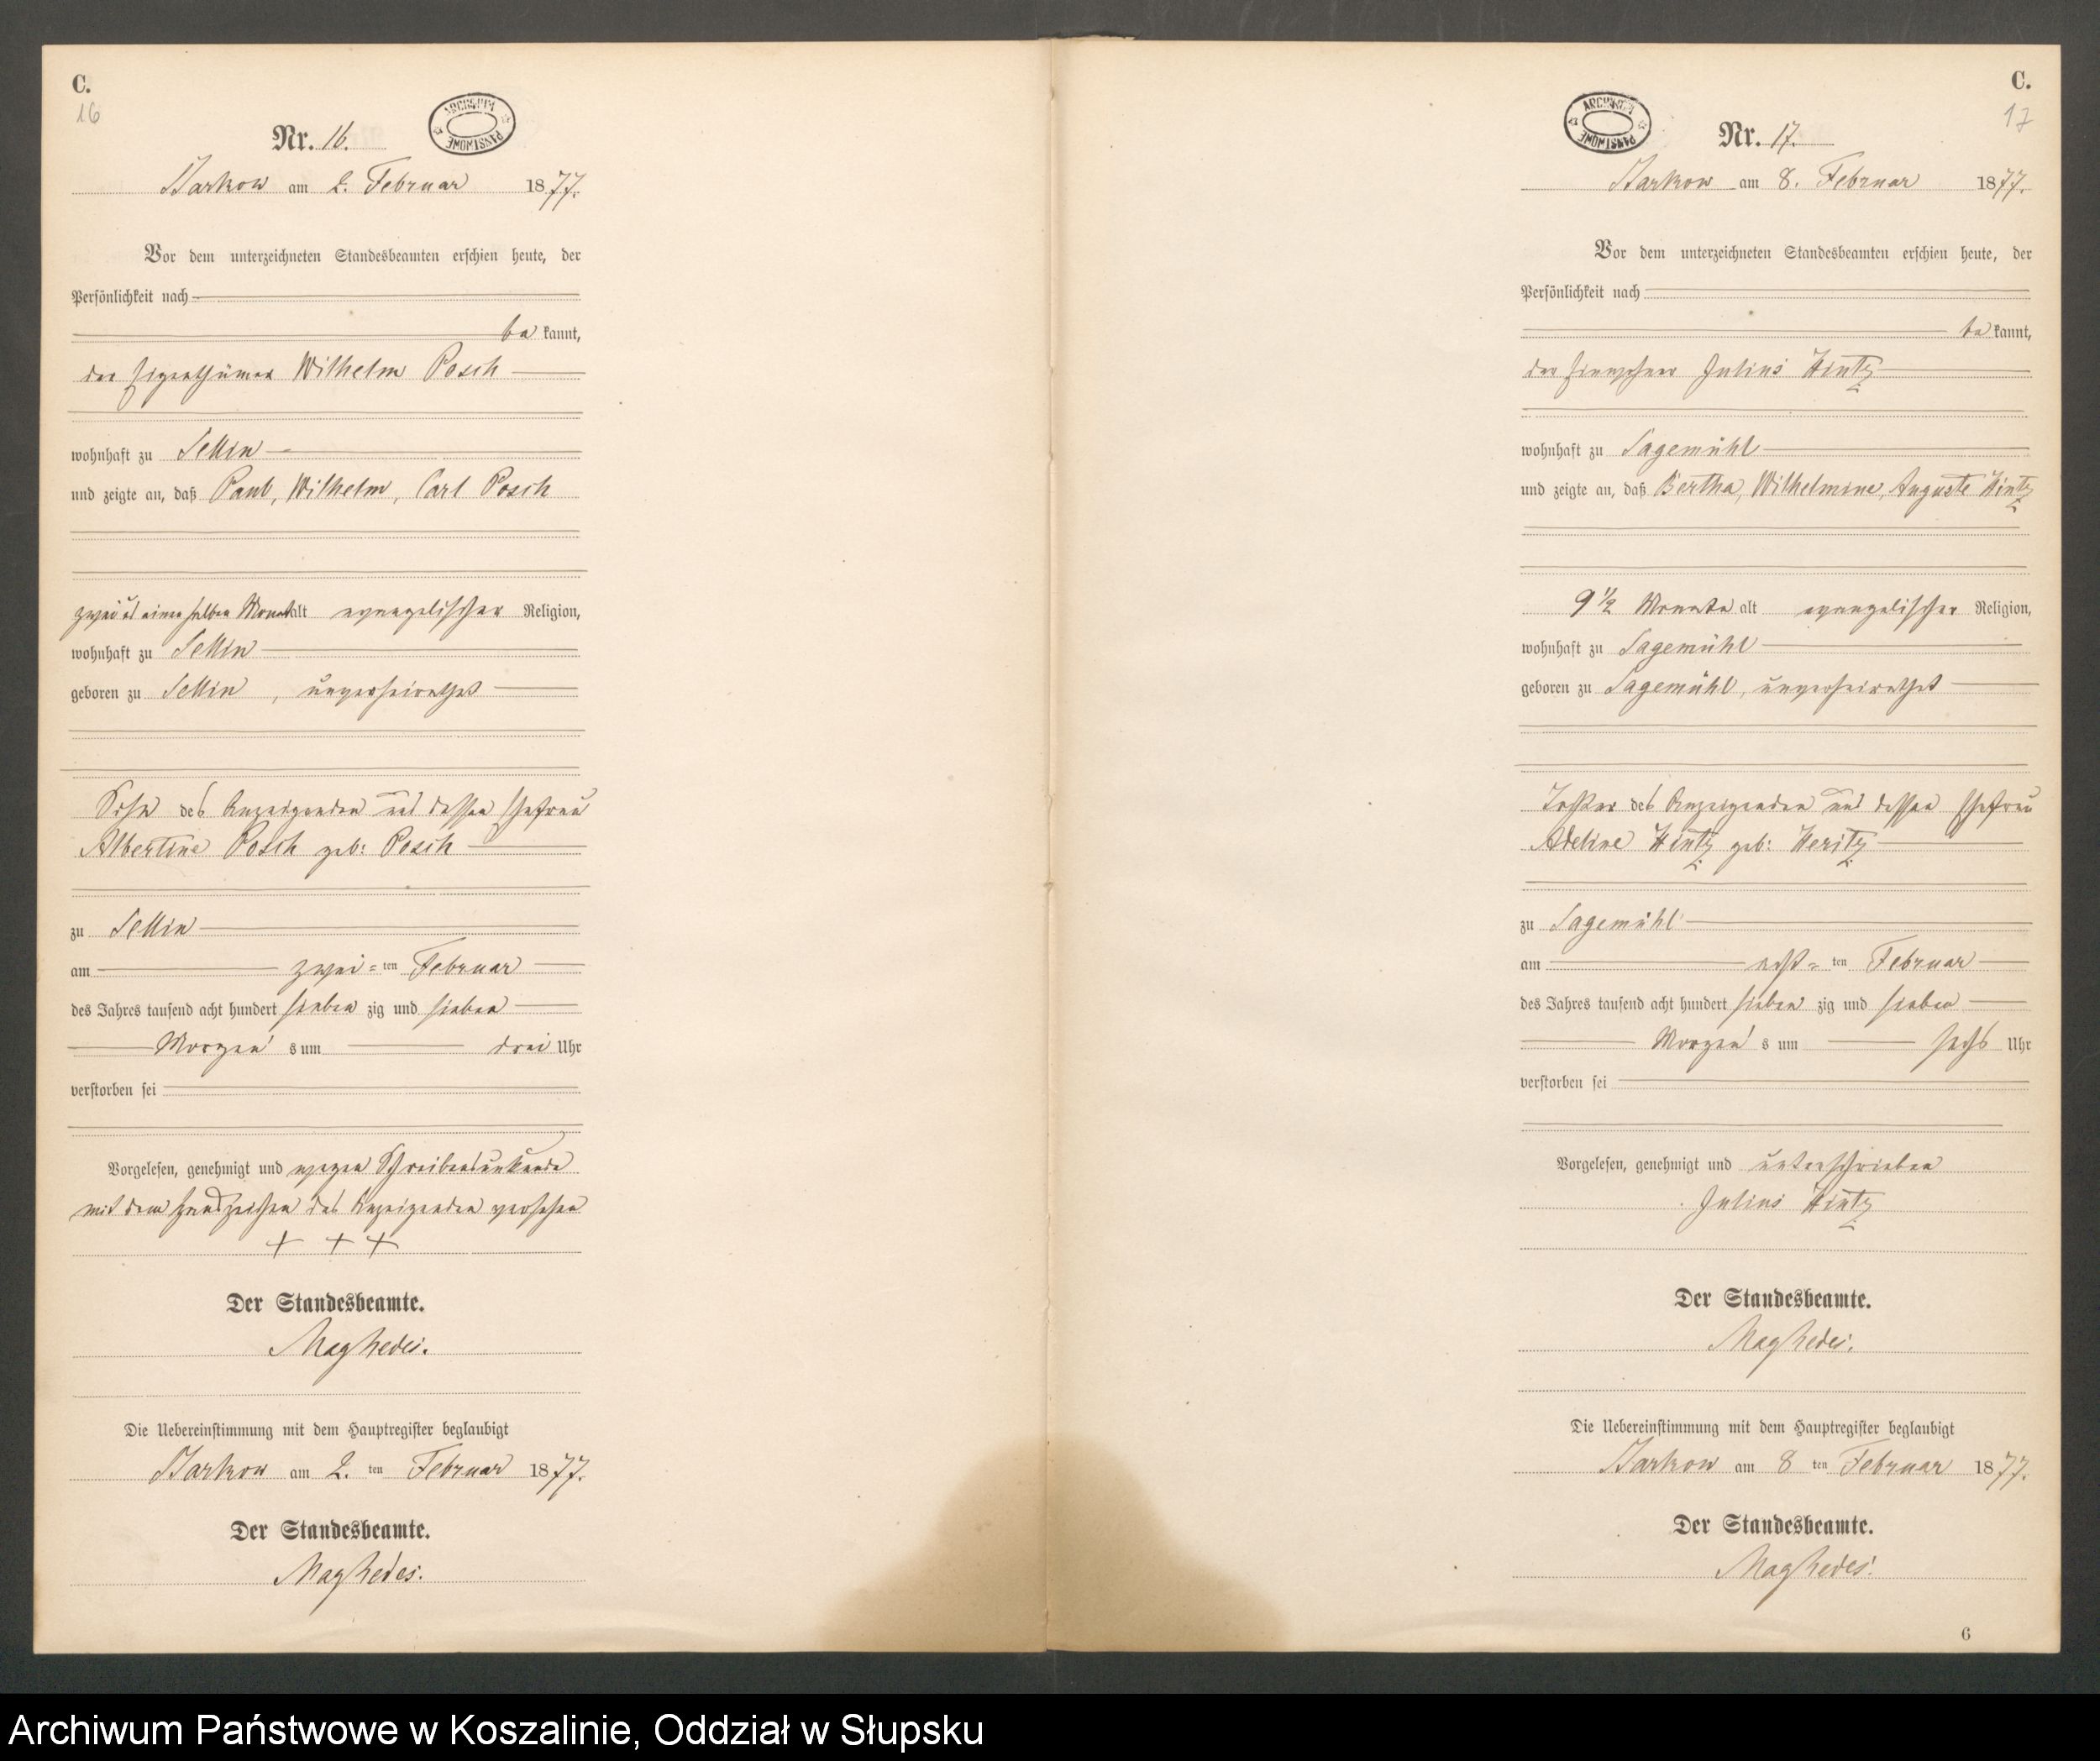 C.
16
Nr. 16.
ARCHIWUM PAŃSTWOWE
Barkow am 2. Februar 1877.
Vor dem unterzeichneten Standesbeamten erschien heute, der
Persönlichkeit nach
be kannt,
der Eigenthümer Wilhelm Posch
wohnhaft zu Sellin
und zeigte an, daß Paul, Wilhelm, Carl Posch
zwei u einen halben Monat alt evangelischer Religion,
wohnhaft zu Sellin
geboren zu Sellin, unverheirathet
Sohn des Anzeigenden und dessen Ehefrau
Albertine Posch geb: Posch
zu Sellin
am zwei=ten Februar
des Jahres tausend acht hundert sieben zig und sieben
Morgen s um drei Uhr
verstorben sei
Vorgelesen, genehmigt und wegen Schreibensunkunde
mit dem Handzeichen des Anzeigenden versehen
+ + +
Der Standesbeamte.
Die Uebereinstimmung mit dem Hauptregister beglaubigt
Barkow am 2. ten Februar 1877.
Der Standesbeamte.
C.
17
Nr. 17.
ARCHIWUM PAŃSTWOWE
Barkow am 8. Februar 1877.
Vor dem unterzeichneten Standesbeamten erschien heute, der
Persönlichkeit nach
be kannt,
der Einwohner Julius Hintz
wohnhaft zu Sagemühl
und zeigte an, daß Bertha, Wilhelmine, Auguste Hintz
9 1/2 Monate alt evangelischer Religion,
wohnhaft zu Sagemühl
geboren zu Sagemühl, unverheirathet
Tochter des Anzeigenden und dessen Ehefrau
Adeline Hintz geb: Heritz
zu Sagemühl
am acht= ten Februar
des Jahres tausend acht hundert sieben zig und sieben
Morgen s um sechs Uhr
verstorben sei
Vorgelesen, genehmigt und unterschrieben
Julius Hintz
Der Standesbeamte.
Die Uebereinstimmung mit dem Hauptregister beglaubigt
Barkow am 8 ten Februar 1877.
Der Standesbeamte.
6
Archiwum Państwowe w Koszalinie, Oddział w Słupsku